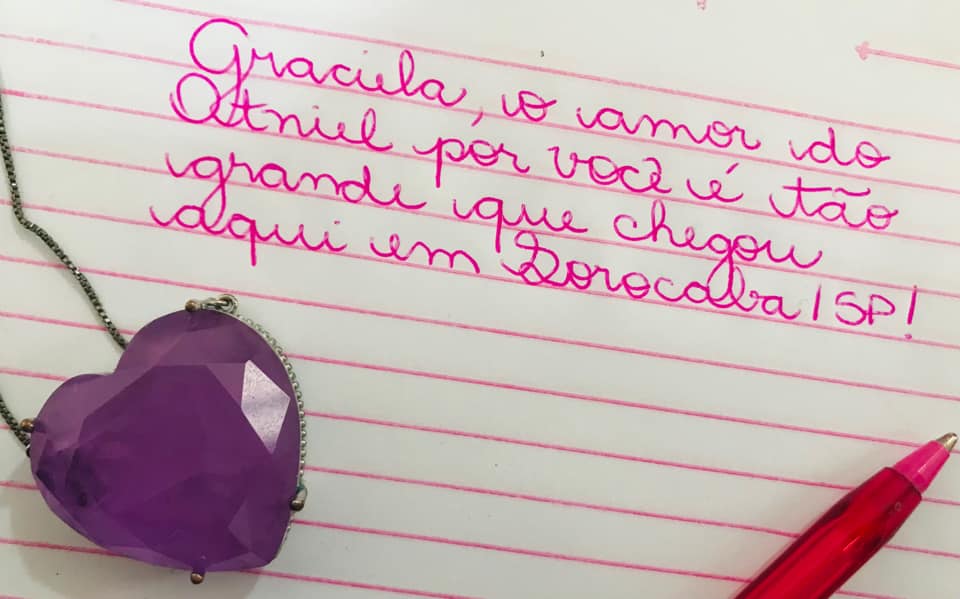 Graciela, o amor do
Otniel por você é tão
grande que chegou
aqui em Sorocaba/SP!